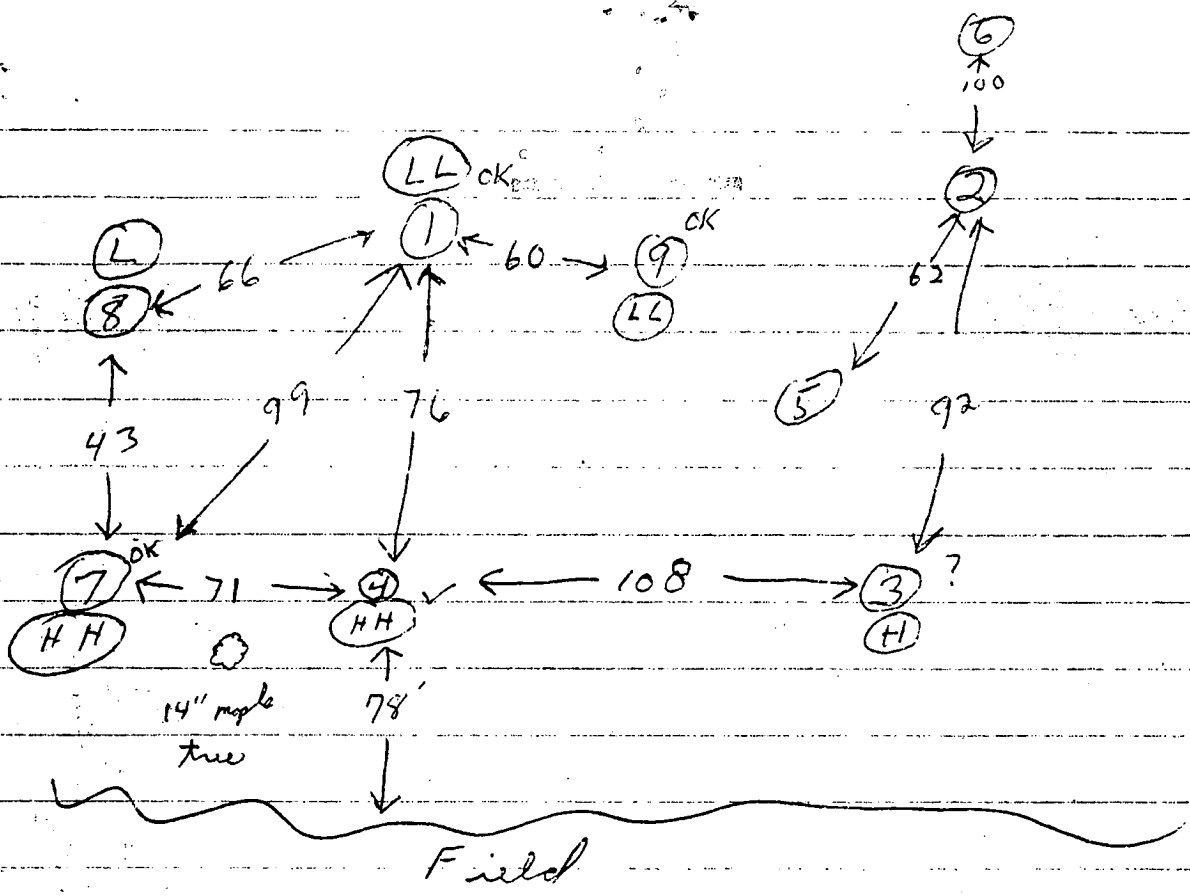 6
100
LL OK
2
L
1
66
60
9 OK
8
LL
62
99
76
5
92
43
7 OK
71
4 ✓
108
3 ?
HH
HH
H
14" maple
tree
78'
Field